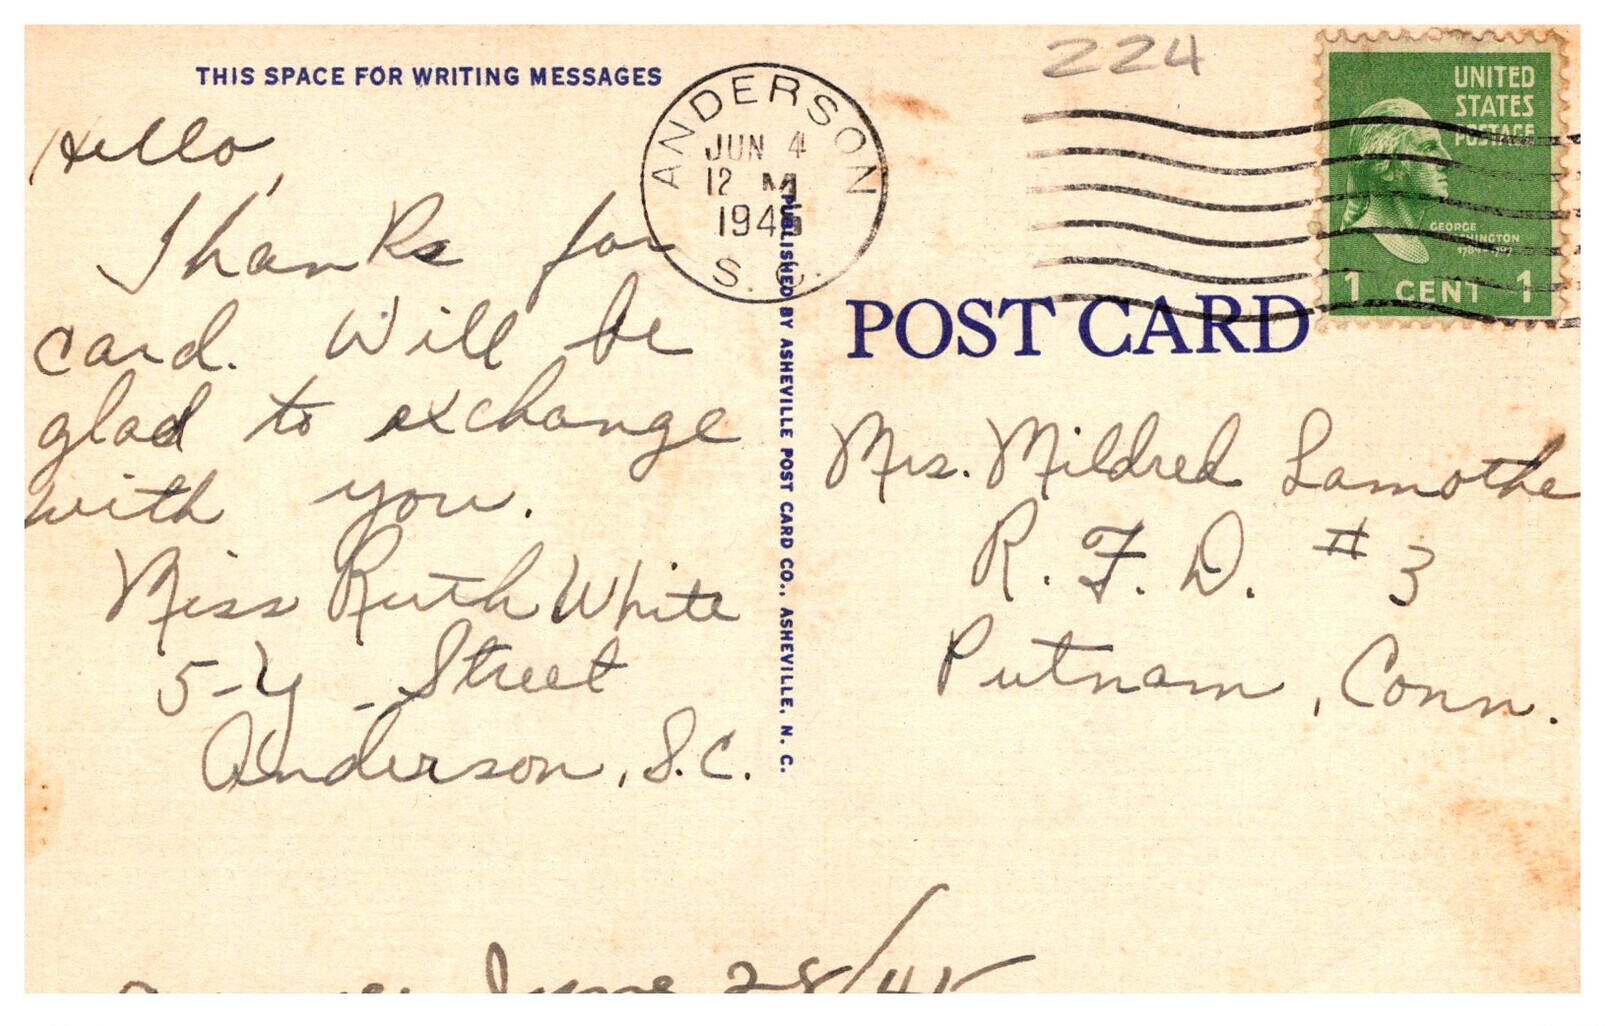 THIS SPACE FOR WRITING MESSAGES
Hello,
Thanks for
card. Will be
glad to exchange
with you.
Miss Ruth White
5-Y Street
Anderson, S.C.
June 28/45
ANDERSON
JUN 4
12 M
1945
S. C.
PUBLISHED BY ASHEVILLE POST CARD CO., ASHEVILLE, N. C.
224
UNITED
STATES
POSTAGE
GEORGE
WASHINGTON
1 CENT 1
POST CARD
Mrs. Mildred Lamothe
R. F. D. # 3
Putnam, Conn.